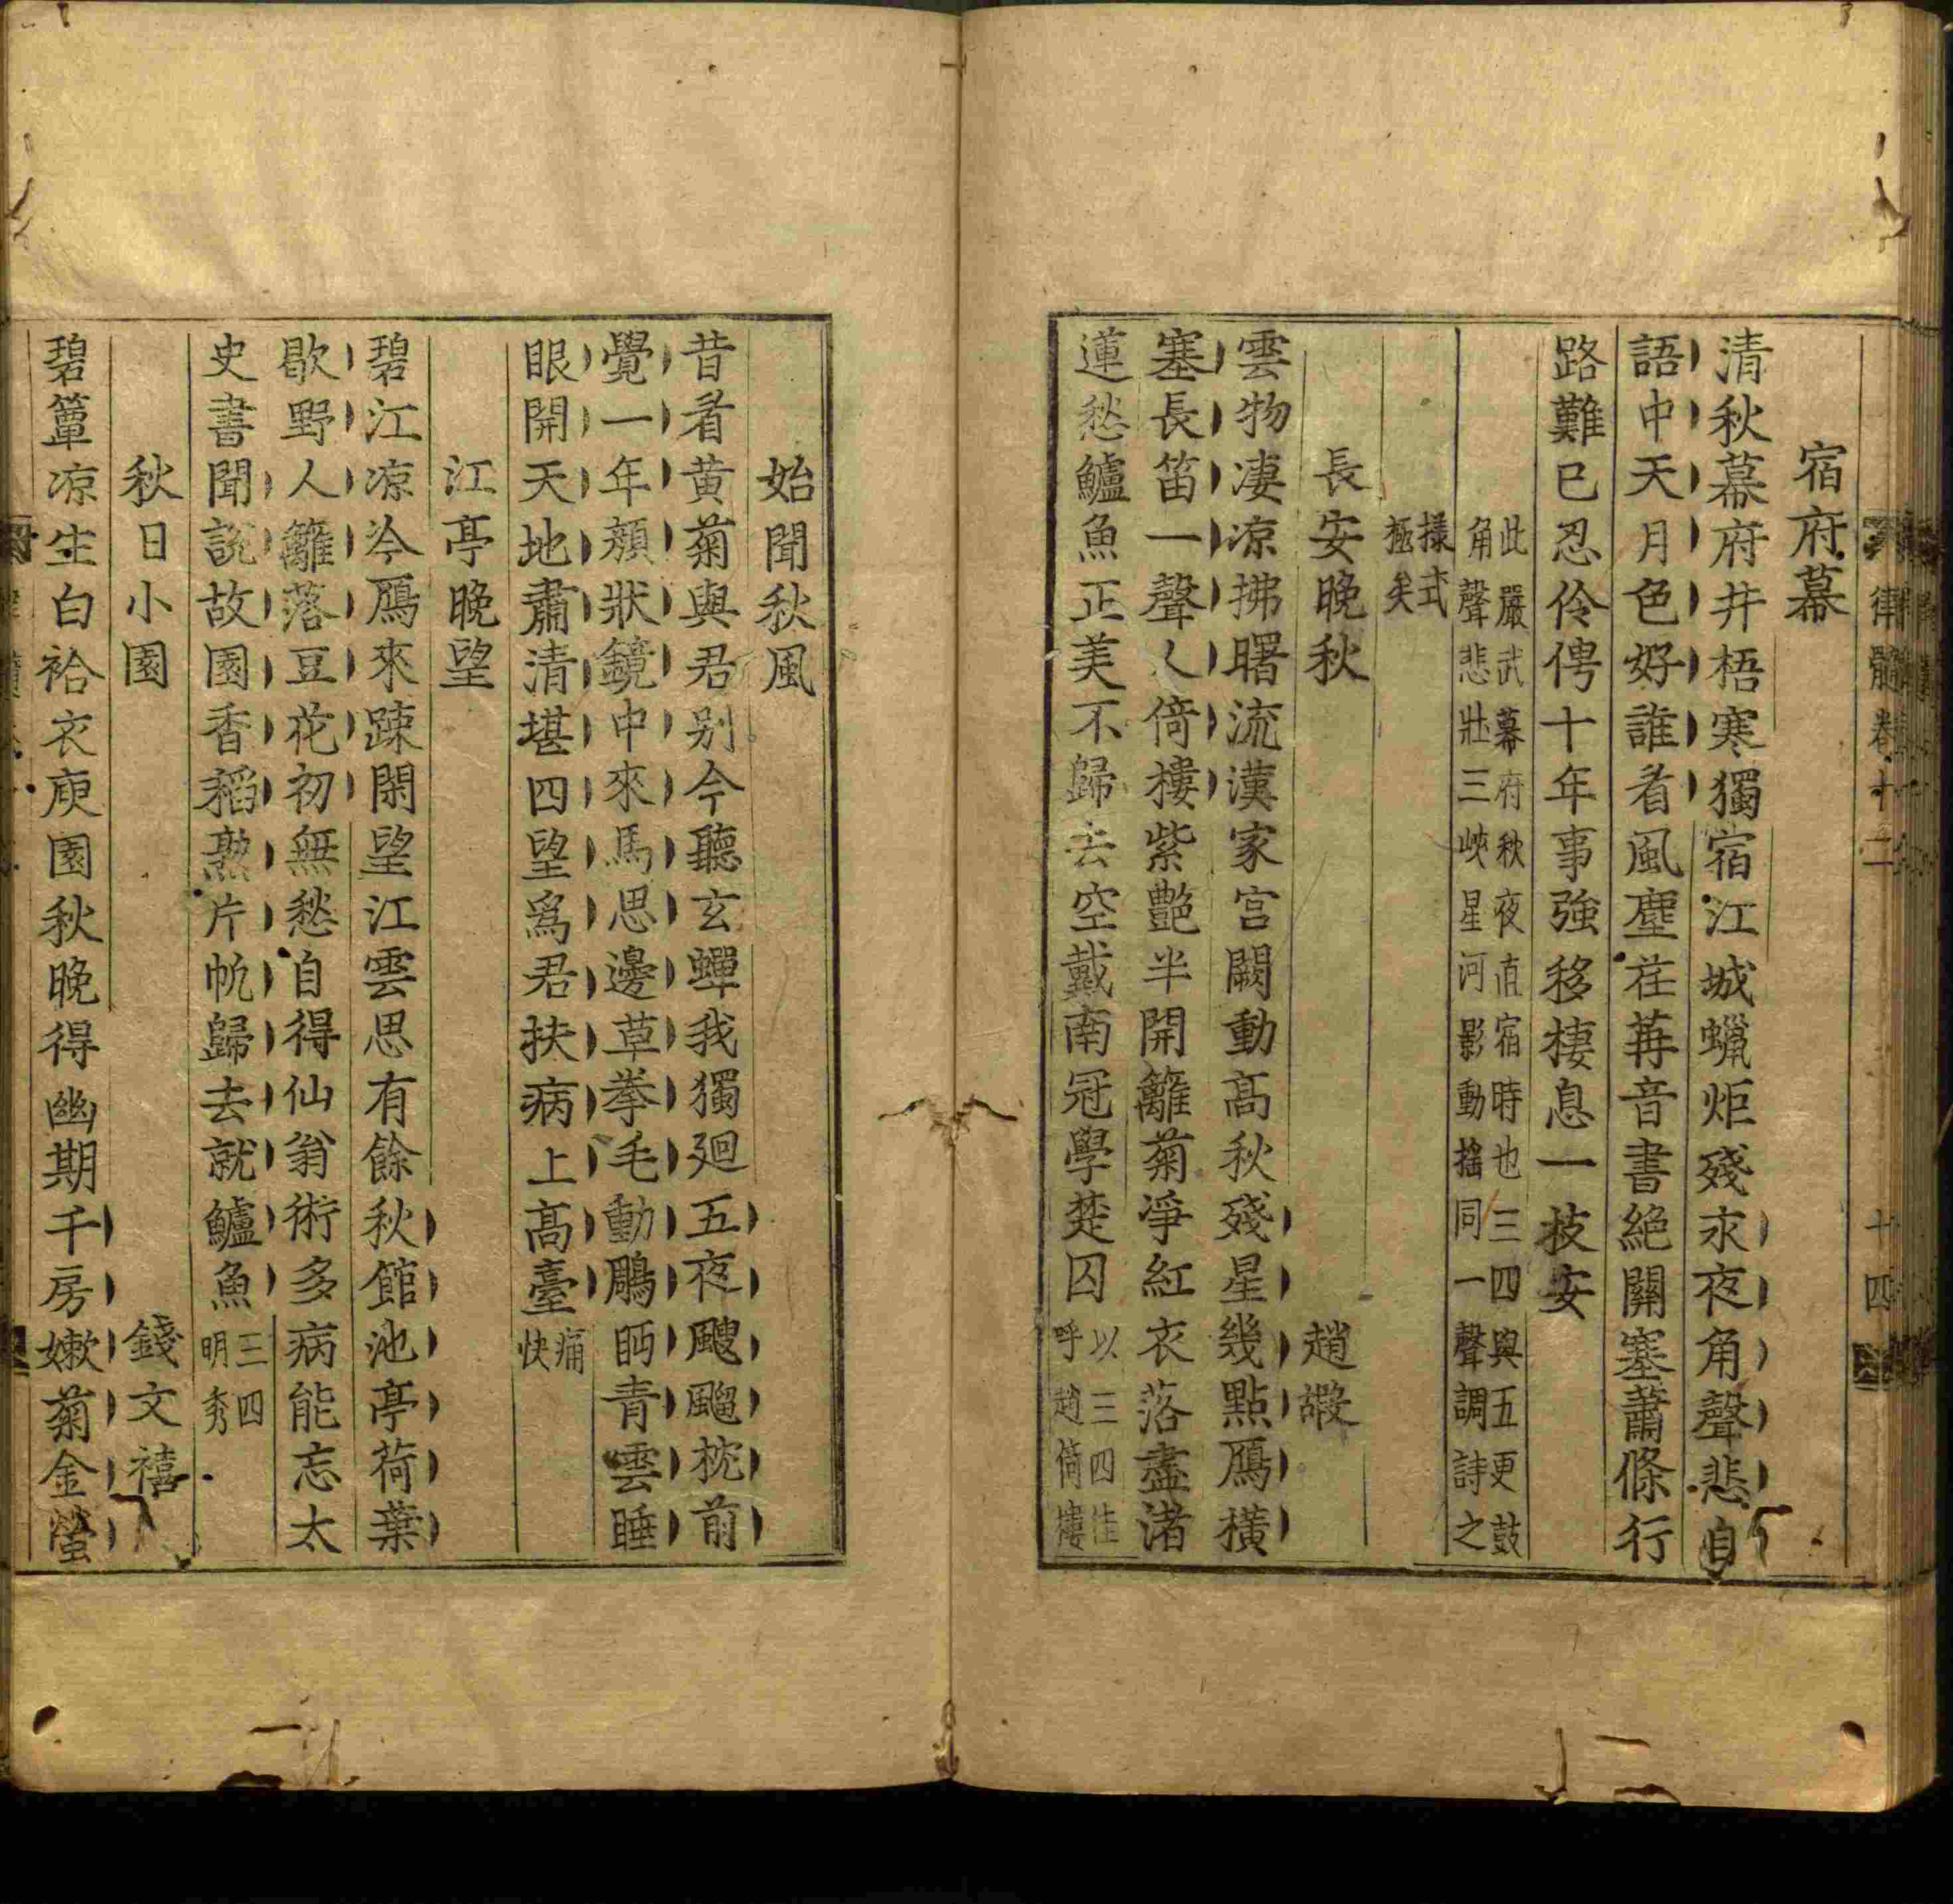 律髓卷十二 十四
宿府幕
清秋幕府井梧寒獨宿江城蠟炬殘永夜角聲悲自
語中天月色好誰看風塵荏苒音書絶關塞蕭條行
路難已忍伶俜十年事強移棲息一枝安
此嚴武幕府秋夜直宿時也三四與五更鼓
角聲悲壯三峽星河影動搖同一聲調詩之
樣式
極矣
長安晚秋 趙嘏
雲物凄凉拂曙流漢家宫闕動髙秋殘星幾點鴈橫
塞長笛一聲人倚樓紫艶半開籬菊凈紅衣落盡渚
蓮愁鱸魚正美不歸去空戴南冠學楚囚
以三四佳
呼趙倚樓
始聞秋風
昔看黄菊與君别今聽玄蟬我獨廻五夜颼飀枕前
覺一年顔狀鏡中來馬思邊草拳毛動鵰眄青雲睡
眼開天地肅清堪四望爲君扶病上髙臺
痛
快
江亭晚望
碧江凉冷鴈來踈閑望江雲思有餘秋館池亭荷葉
歇野人籬落豆花初無愁自得仙翁術多病能忘太
史書聞說故園香稻熟片帆歸去就鱸魚
三四
明秀
秋日小園 錢文禧
碧簟凉生白袷衣庾園秋晚得幽期千房嫩菊金螢